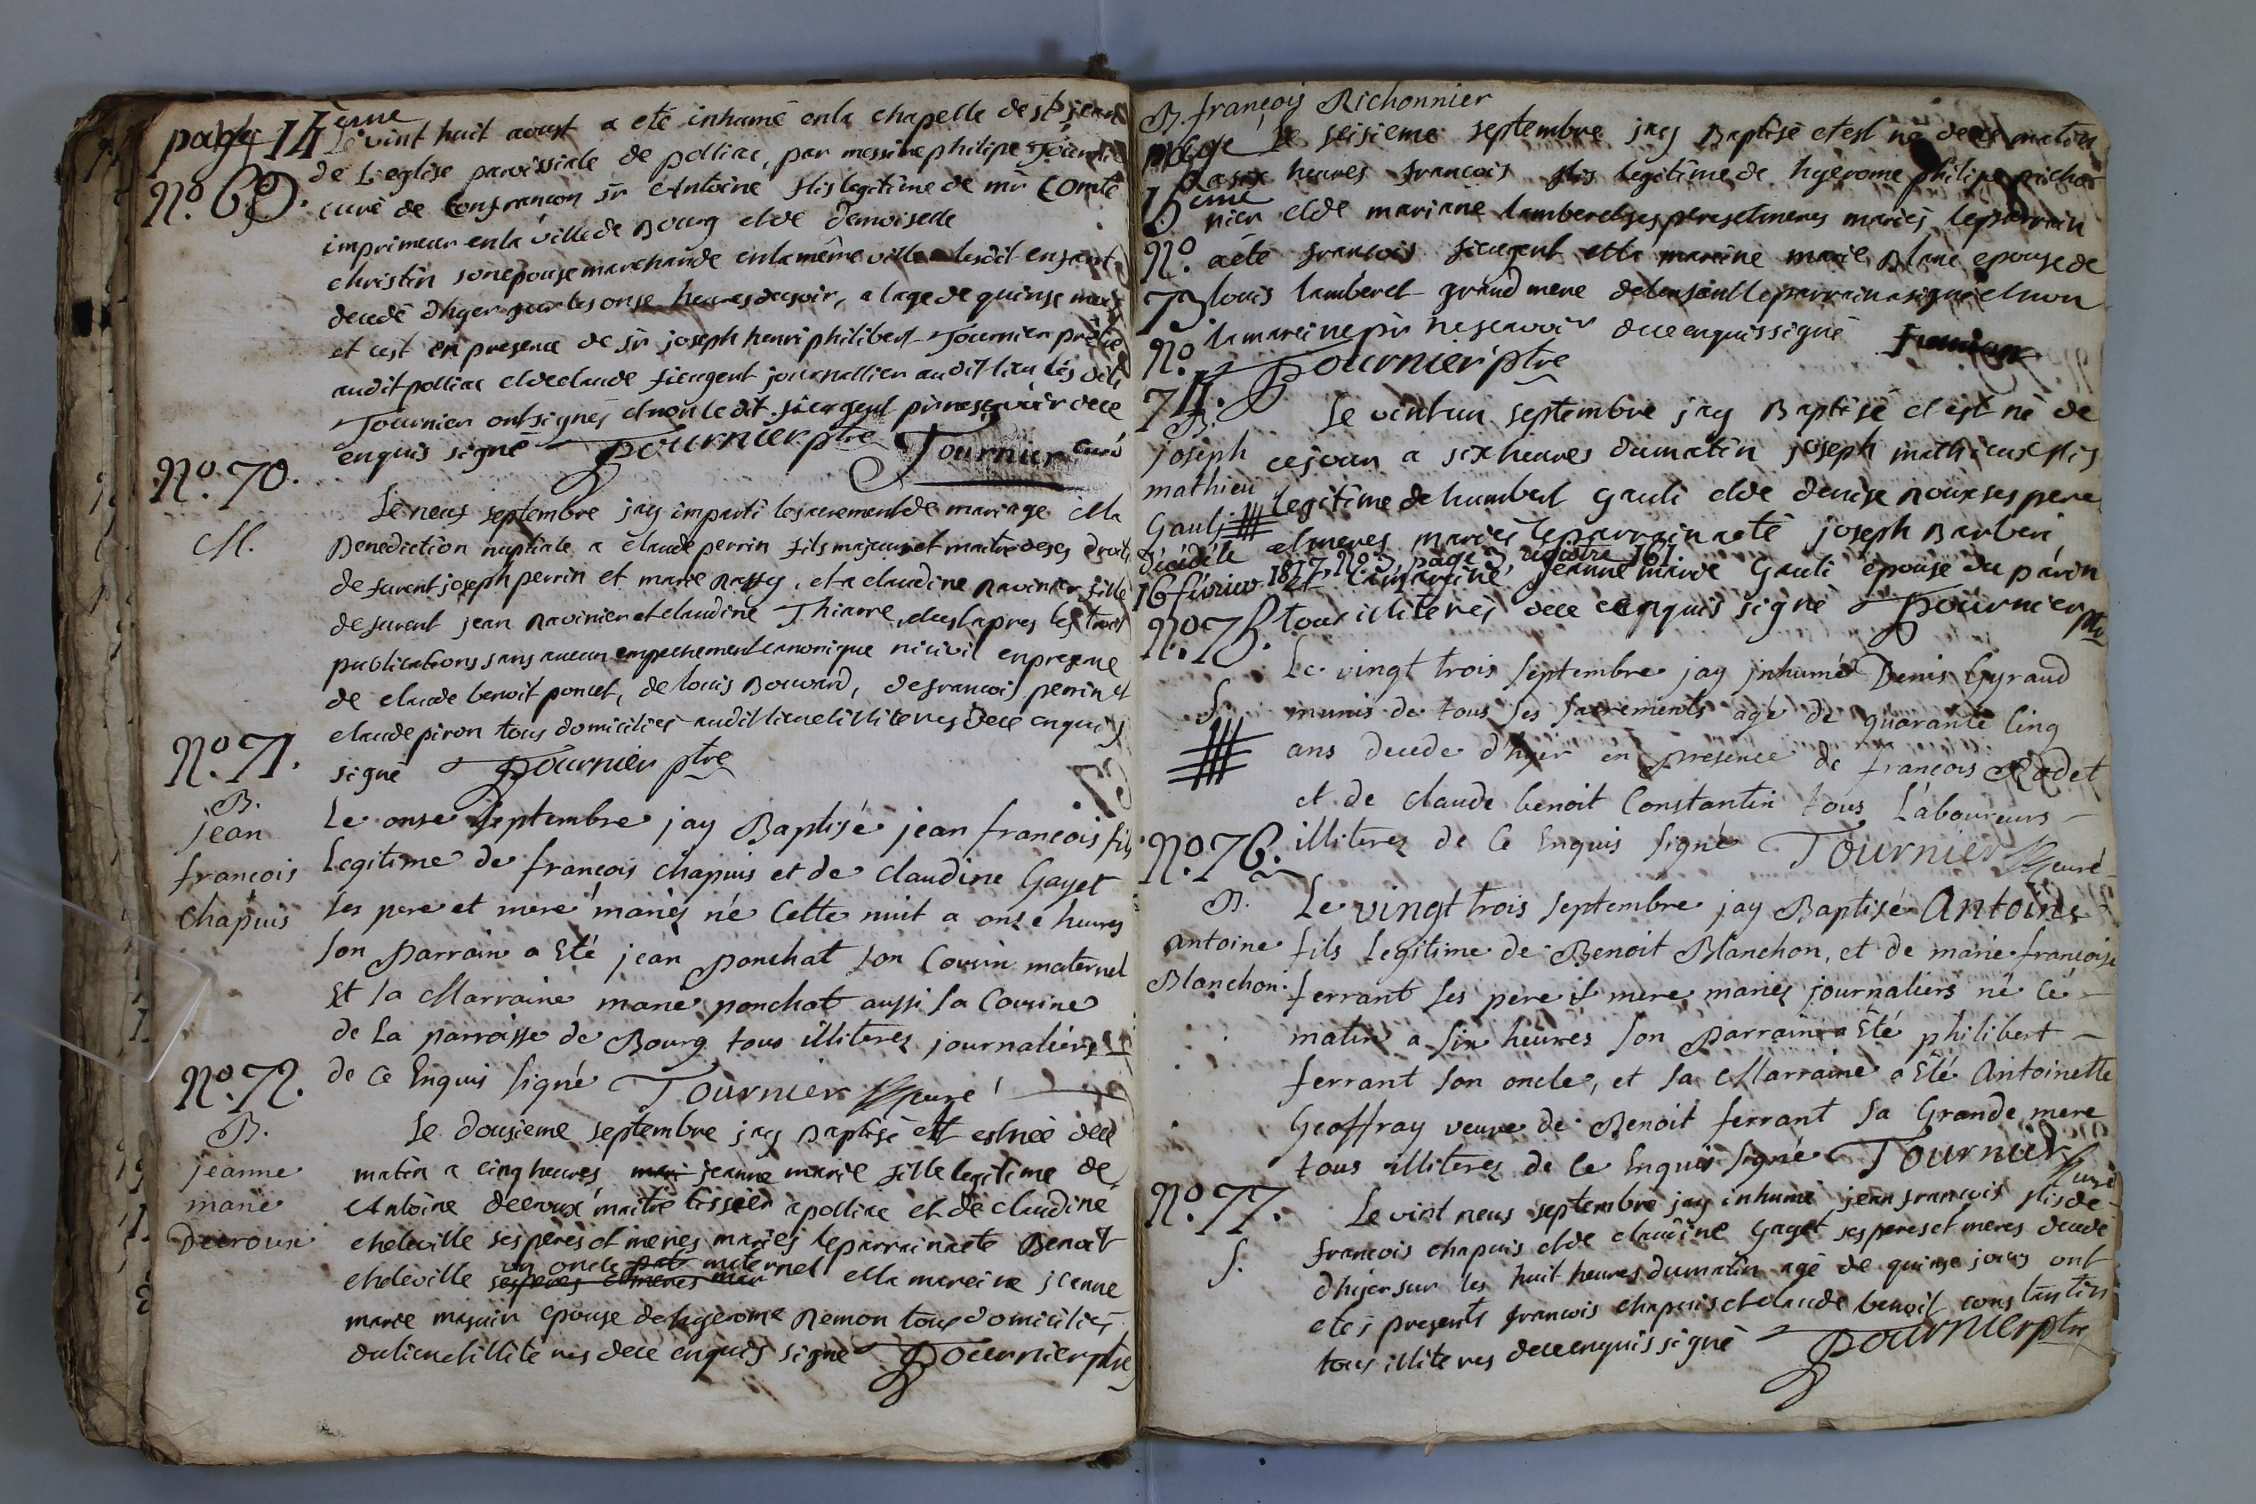 page 14 eme
Le vint huit aoust a eté inhumé enla chapelle de st jean
de L'eglise paroissiale de polliac, par messire philipe Tournié
No. 69.
curé de Confrançon sr Antoine fils legitime de mr Comte
imprimeur enla ville de Bourg et de demoiselle
christin son epouse marchande enla même ville ledit enfant
decedé d'hyer sur les onse heures du soir, a lage de quinse mois
et cest en presence de sr joseph henri philibert Tournier prêtre
audit polliac et declaude fieugent journallier audit lieu lés dits
Tournier ont signés et non le dit fieugent pr ne sçavoir dece
enquis signé Tournier ptre Tournier curé
No. 70.
M.
Le neuf septembre jay imparti le sacrement de mariage et la
Benediction nuptiale a claude perrin fils majeur et maitre de ses droits
de furent joseph perrin et marie Rassy, et a claudine Ravinier fille
de furent jean Ravinier et claudine Thiarre, et cest apres les trois
publications sans aucun empechement canonique ni civil en presence
de claude benoit poncet, de louis Bouvard, de francois perrin et
claude piron tous domiciliés audit lieu et illiteres dece enquis
signé Tournier ptre
No. 71.
B.
jean
françois
chapuis
Le onse septembre jay Baptisé jean francois fils
Legitime de françois chapuis et de claudine Gayet
ses pere et mere mariés né Cette nuit a onse heures
son parrain a Eté jean ponchat son Cousin maternel
Et sa Marraine marie ponchat aussi sa Cousine
de La parroisse de Bourg tous illiteres journaliers
de Ce Enquis signé Tournier curé
No. 72.
B.
jeanne
marie
Decroux
Le dousieme septembre jay Baptisé et est née dece
matin a cinq heures mari jeanne marie fille legitime de
Antoine decroux maitre tissier a polliac et de claudine
cheleville ses peres et meres mariés le parrain a eté Benoit
cheleville ses peres et meres mar un oncle pate maternel et la mareine jeanne
marie maguin epouse de hyerome Remon tous domiciliés
du lieu et illiteres dece enquis signé Tournier ptre
B. françois Richonnier
page 15 eme
No. 73
Le seisieme septembre jay Baptisé et est né de ce matin
a six heures francois fils legitime de hyerome philipe richo
nier et de mariane lamberet ses peres et meres mariés le parrain
a eté francois fieugent et la mareine marie Blanc epouse de
louis lamberet grand mere de lenfant le parrain a signé et non
la mareine pr ne scavoir dece enquis signé
Tournier ptre
No. 74.
B.
joseph
mathieu
Gauli
décédé le
16 février 1847, No 5, page 3, registre 161.
Le vint un septembre jay Baptisé et est né de
cejour a six heures du matin joseph mathieu fils
legitime de humbert Gauli et de denise Roux ses pere
et meres mariés le parrain a eté joseph Barberi
et la mareine jeanne marie Gauli epouse du parin
tous illiteres dece enquis signé Tournier ptre
No. 75.
S.
Le vingt trois septembre jay inhumé Denis Gyraud
munis de tous ses sacrements agé de quarante Cinq
ans decede d'hyer en presence de françois Rodet
et de claude benoit Constantin tous Laboureurs
illiteres de Ce Enquis signé Tournier curé
No. 76.
B.
antoine
Blanchon.
Le vingt trois septembre jay Baptisé Antoine
fils Legitime de Benoit Blanchon, et de marie françoise
ferrant ses pere et mere mariés journaliers né Ce
matin a six heures son parrain a Eté philibert
ferrant son oncle, et sa Marraine a Eté Antoinette
Geoffray veuve de Benoit ferrant sa Grande mere
tous illiteres de Ce Enquis signé Tournier curé
No. 77.
S.
Le vint neuf septembre jay inhumé jean francois fils de
francois chapuis et de claudine Gayet ses peres et meres decedé
d'hyer sur les huit heures du matin agé de quinse jours ont
etés presents francois chapuis et claude benoit constantin
tous illiteres dece enquis signé Tournier ptre